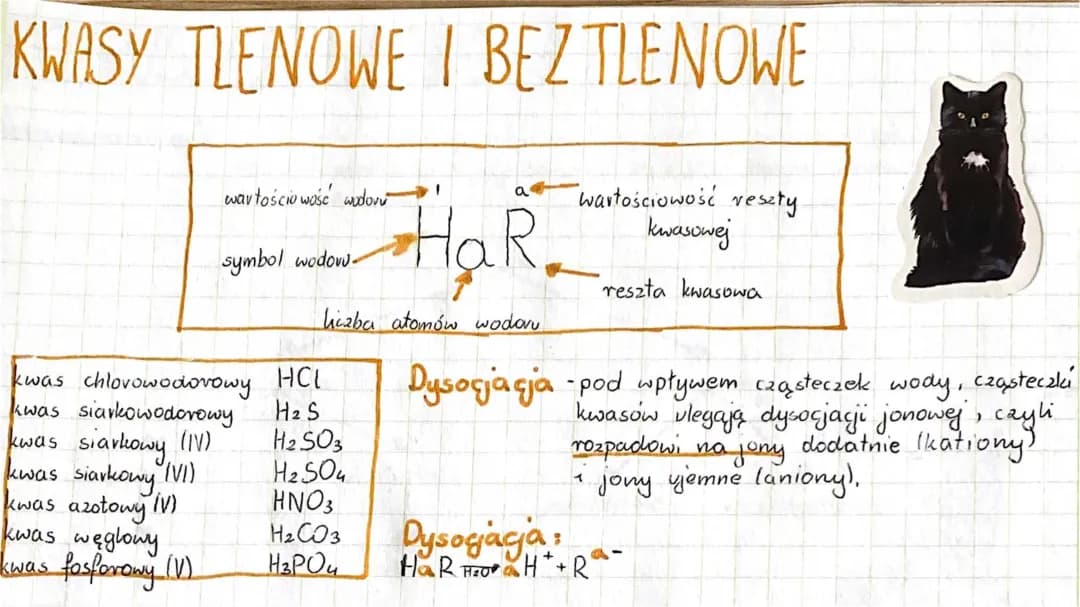 KWASY TLENOWE I BEZTLENOWE
wartościowość wodoru
I
a
wartościowość reszty
kwasowej
symbol wodoru
HaR
reszta kwasowa
liczba atomów wodoru
kwas chlorowodorowy HCl
kwas siarkowodorowy H2S
kwas siarkowy (IV) H2SO3
kwas siarkowy (VI) H2SO4
kwas azotowy (V) HNO3
kwas węglowy H2CO3
kwas fosforowy (V) H3PO4
Dysocjacja - pod wpływem cząsteczek wody, cząsteczki
kwasów ulegają dysocjacji jonowej, czyli
rozpadowi na jony dodatnie (kationy)
i jony ujemne (aniony).
Dysocjacja:
HaR H2O aH⁺ + Rᵃ⁻